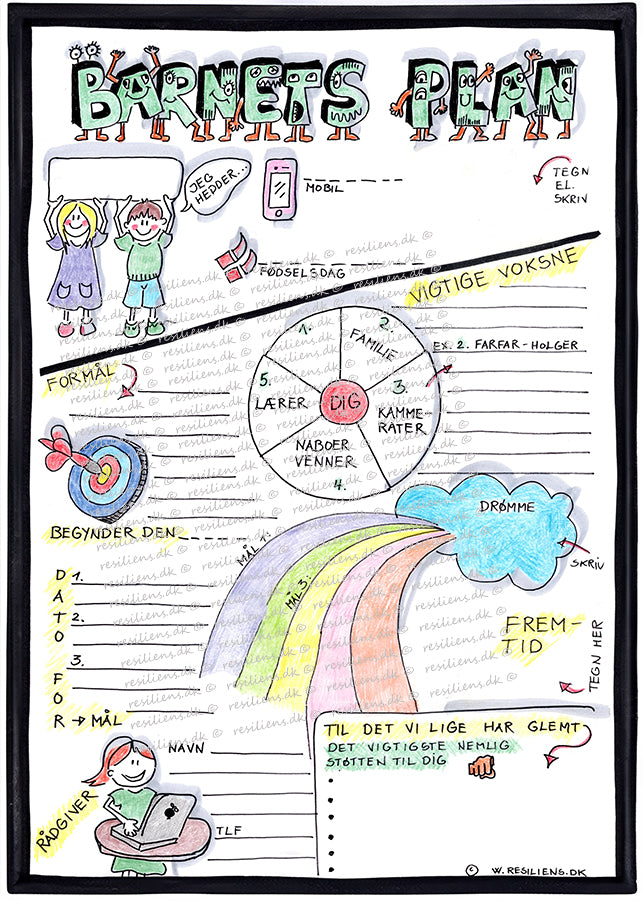 BARNETS PLAN
JEG
HEDDER...
MOBIL
TEGN
EL.
SKRIV
FØDSELSDAG
VIGTIGE VOKSNE
EX. 2. FARFAR-HOLGER
FORMÅL
1.
2.
FAMILIE
3.
KAMME-
RATER
4.
NABOER
VENNER
5.
LÆRER
DIG
BEGYNDER DEN
DRØMME
SKRIV
MÅL 1:
MÅL 3:
FREM-
TID
TEGN HER
DATO FOR → MÅL
1.
2.
3.
NAVN
TLF
RÅDGIVER
TIL DET VI LIGE HAR GLEMT
DET VIGTIGSTE NEMLIG
STØTTEN TIL DIG
© W.RESILIENS.DK
resiliens.dk ©